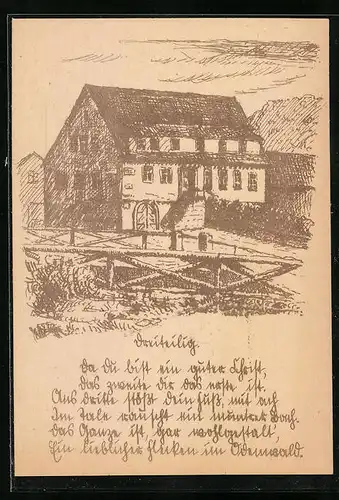 Dreiteilig.
Da du bist ein guter Christ,
Das zweite dir das erste ist.
Ans dritte stößt dein Fuß, mit ach
Im Tale rauscht ein muntrer Bach.
Das Ganze ist gar wohlgestalt,
Ein lieblicher Flecken im Odenwald.